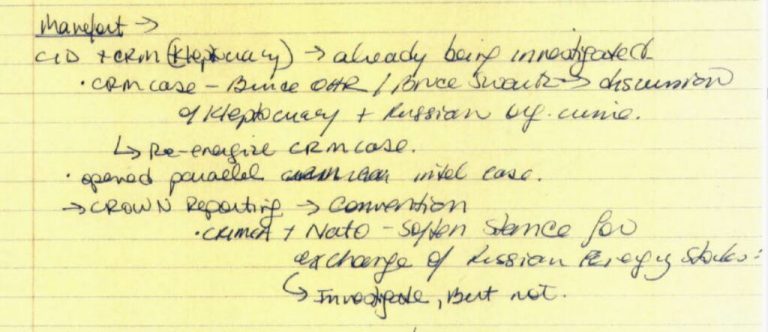 Manafort →
CID + CRM (Kleptocracy) → already being investigated.
· CRM case – Bruce OHR / Bruce Swartz → discussion
of Kleptocracy + Russian Org. crime.
↳ Re-energize CRM case.
· opened parallel intel case.
→ CROWN Reporting → Convention
· CRIMEA + Nato – Soften stance for
exchange of Russian Energy Stocks.
↳ Investigate, But not.